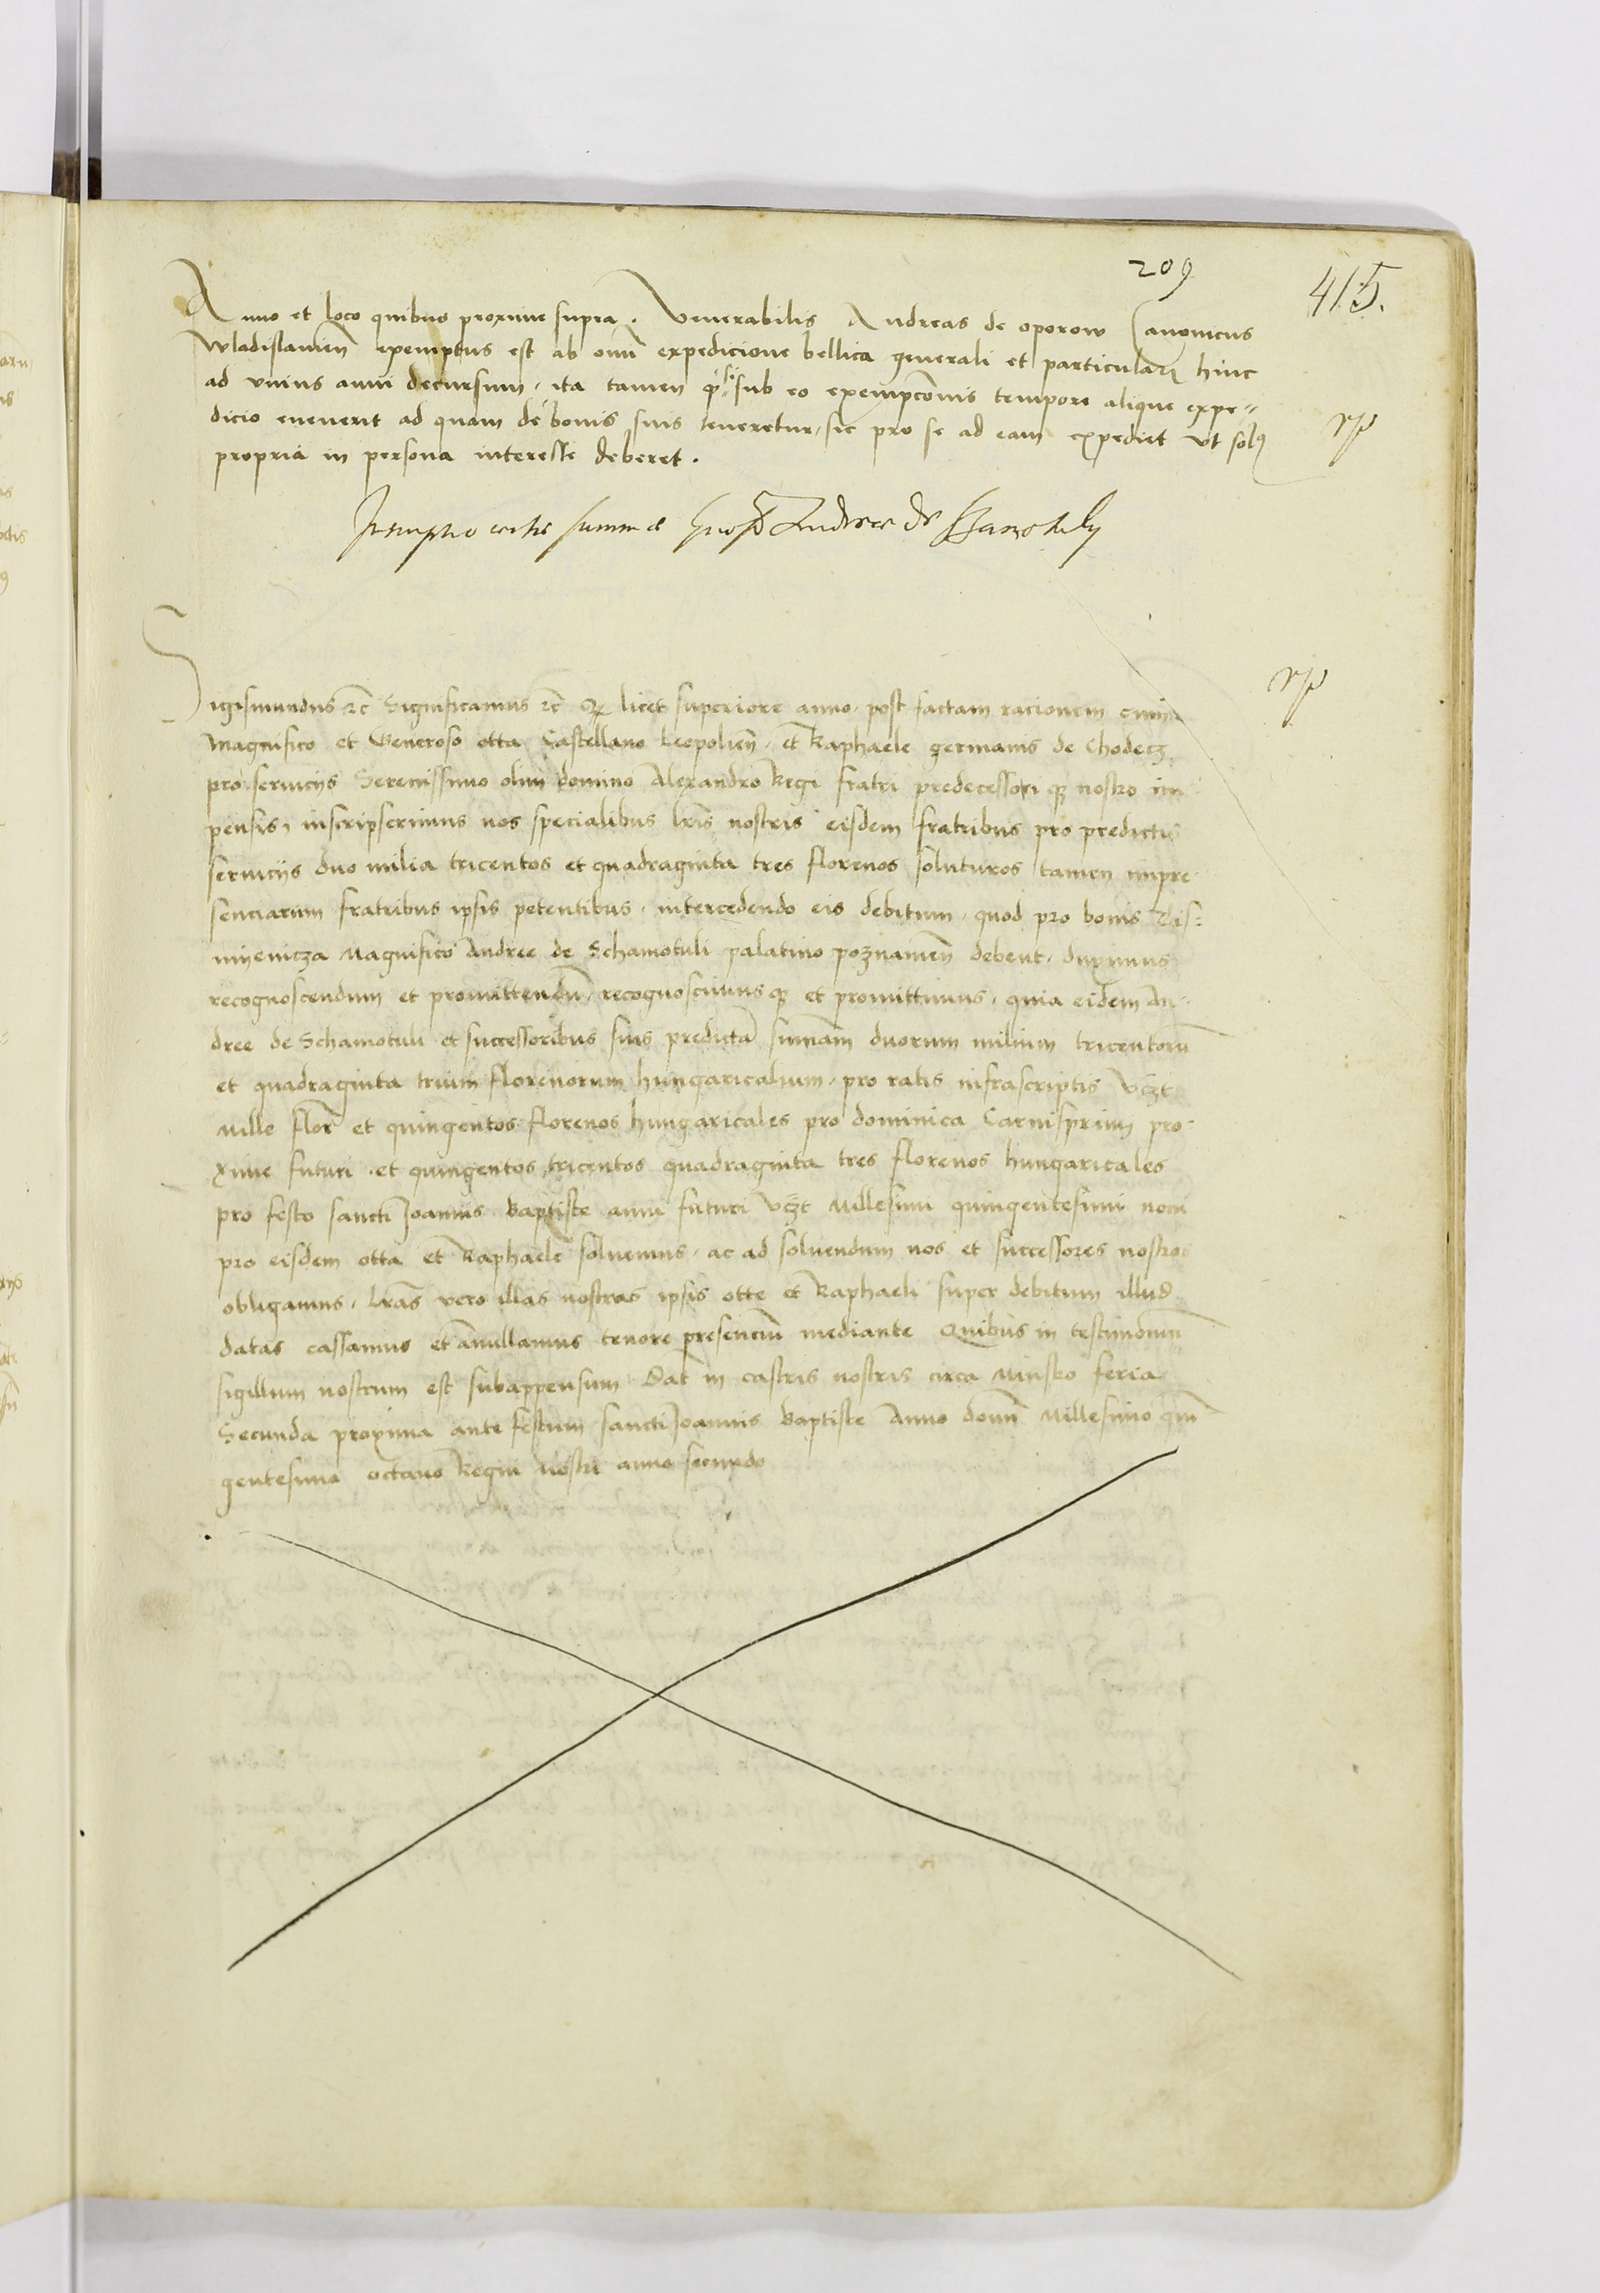 209
415.
Anno et loco quibus proxime supra. Venerabilis Andreas de oporow Canonicus
Wladislauien̄ exemptus est ab om̄i expedicione bellica generali et particulari hinc
ad vnius anni decursum, ita tamen ꝙ si sub eo exempcōnis tempore aliqua expe-
dicio euenerit ad quam de bonis suis teneretur, sic pro se ad eam expediet vt solus
propria in persona interesse deberet.
summe Andree de Schamotuly
Sigismundus ꝛc̄ Significamus ꝛc̄ Qꝫ licet superiore anno, post factam racionem cum
Magnifico et Generoso otta Castellano Leopolien̄, et Raphaele germanis de Chodecz
pro seruicijs Serenissimo olim domino Alexandro Regi fratri predecessori qꝫ nostro im
pensis, inscripserimus nos specialibus lr̄is nostris eisdem fratribus pro predictis
seruicijs duo milia tricentos et quadraginta tres florenos soluturos tamen impre
senciarum fratribus ipsis petentibus, intercedendo eis debitum, quod pro bonis Tis-
myenicza Magnifico Andree de Schamotuli palatino poznanien̄ debent, duximus
recognoscendum et promittendū, recognoscimus qꝫ et promittimus, quia eidem An-
dree de Schamotuli et successoribus suis predictā summam duorum milium tricentorū
et quadraginta trium florenorum hungaricalium, pro ratis infrascriptis vcꝫt
Mille flor̄ et quingentos florenos hungaricales pro dominica Carnispriuij pro-
xime futuri, et quingentos tricentos quadraginta tres florenos hungaricales
pro festo sancti Joannis Baptiste anni futuri vcꝫt Millesimi quingentesimi noni
pro eisdem otta et Raphaele soluemus, ac ad soluendum nos et successores nostros
obligamus, lr̄as vero illas nostras ipsis otte et Raphaeli super debitum illud
datas cassamus et annullamus tenore presenciū mediante Quibus in testimoniū
sigillum nostrum est subappensum Dat̄ in castris nostris circa Minsko feria
Secunda proxima ante festum sancti Joannis Baptiste Anno domī Millesimo quin
gentesimo octauo Regni nostri anno secundo